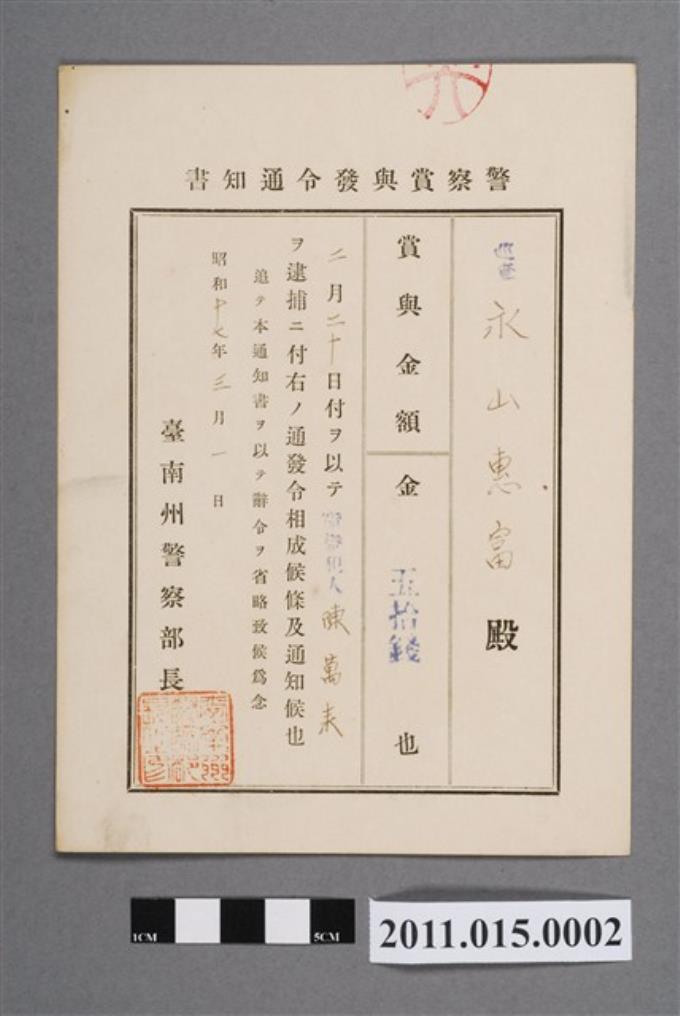 警察賞與發令通知書
巡査 永山惠富 殿
賞與金額
金 五拾錢 也
二月二十日付ヲ以テ窃盜犯人 陳萬来
ヲ逮捕ニ付右ノ通發令相成候條及通知候也
追テ本通知書ヲ以テ辭令ヲ省略致候爲念
昭和十七年三月一日
臺南州警察部長
1CM
5CM
2011.015.0002